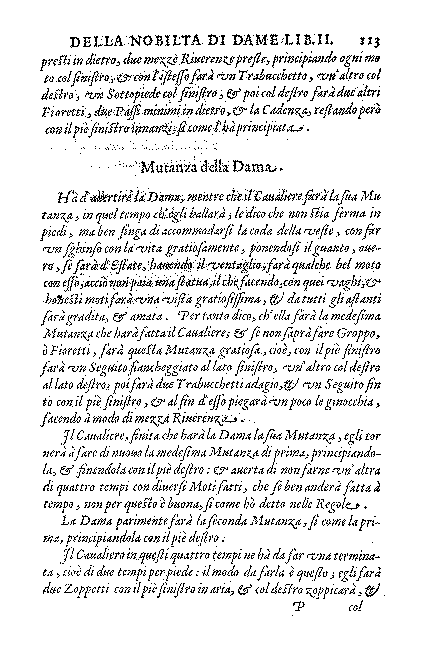 DELLA NOBILTA DI DAME LIB. II. 113
presti in dietro, due mezze Riuerenze preste, principiando ogni mo
to col sinistro, & con l'istesso farà vn Trabucchetto, vn'altro col
destro, vn Sottopiede col sinistro, & poi col destro farà due altri
Fioretti, due Passi minimi in dietro, & la Cadenza, restando però
con il piè sinistro innanzi, si come l'hà principiata.
Mutanza della Dama.
Hà d'auertire la Dama, mentre che il Caualiere farà la sua Mu
tanza, in quel tempo ch'egli ballarà, le dico che non stia ferma in
piedi, ma ben finga di accommodarsi la coda della veste, con far
vn sghinso con la vita gratiosamente, ponendosi il guanto, oue-
ro, se sarà d'Estate, hauendo il ventaglio, farà qualche bel moto
con esso, acciò non paia una statua, il che facendo, con quei vaghi, &
honesti moti farà vna vista gratiosissima, & da tutti gli astanti
sarà gradita, & amata. Per tanto dico, ch'ella farà la medesima
Mutanza che harà fatta il Caualiere; & se non saprà fare Groppo,
ò Fioretti, farà questa Mutanza gratiosa, cioè, con il piè sinistro
farà vn Seguito fiancheggiato al lato sinistro, vn'altro col destro
al lato destro; poi farà due Trabucchetti adagio, & vn Seguito fin
to con il piè sinistro, & al fin d'esso piegarà vn poco le ginocchia,
facendo à modo di mezza Riuerenza.
Il Caualiere, finita che harà la Dama la sua Mutanza, egli tor
nerà à fare di nuouo la medesima Mutanza di prima, principiando-
la, & finendola con il piè destro: & auerta di non farne vn'altra
di quattro tempi con diuersi Moti fatti, che se ben anderà fatta à
tempo, non per questo è buona, si come hò detto nelle Regole.
La Dama parimente farà la seconda Mutanza, si come la pri-
ma, principiandola con il piè destro:
Il Caualiero in questi quattro tempi ne hà da far vna termina-
ta, cioè di due tempi per piede: il modo da farla è questo; egli farà
due Zoppetti con il piè sinistro in aria, & col destro zoppicarà, &
P col